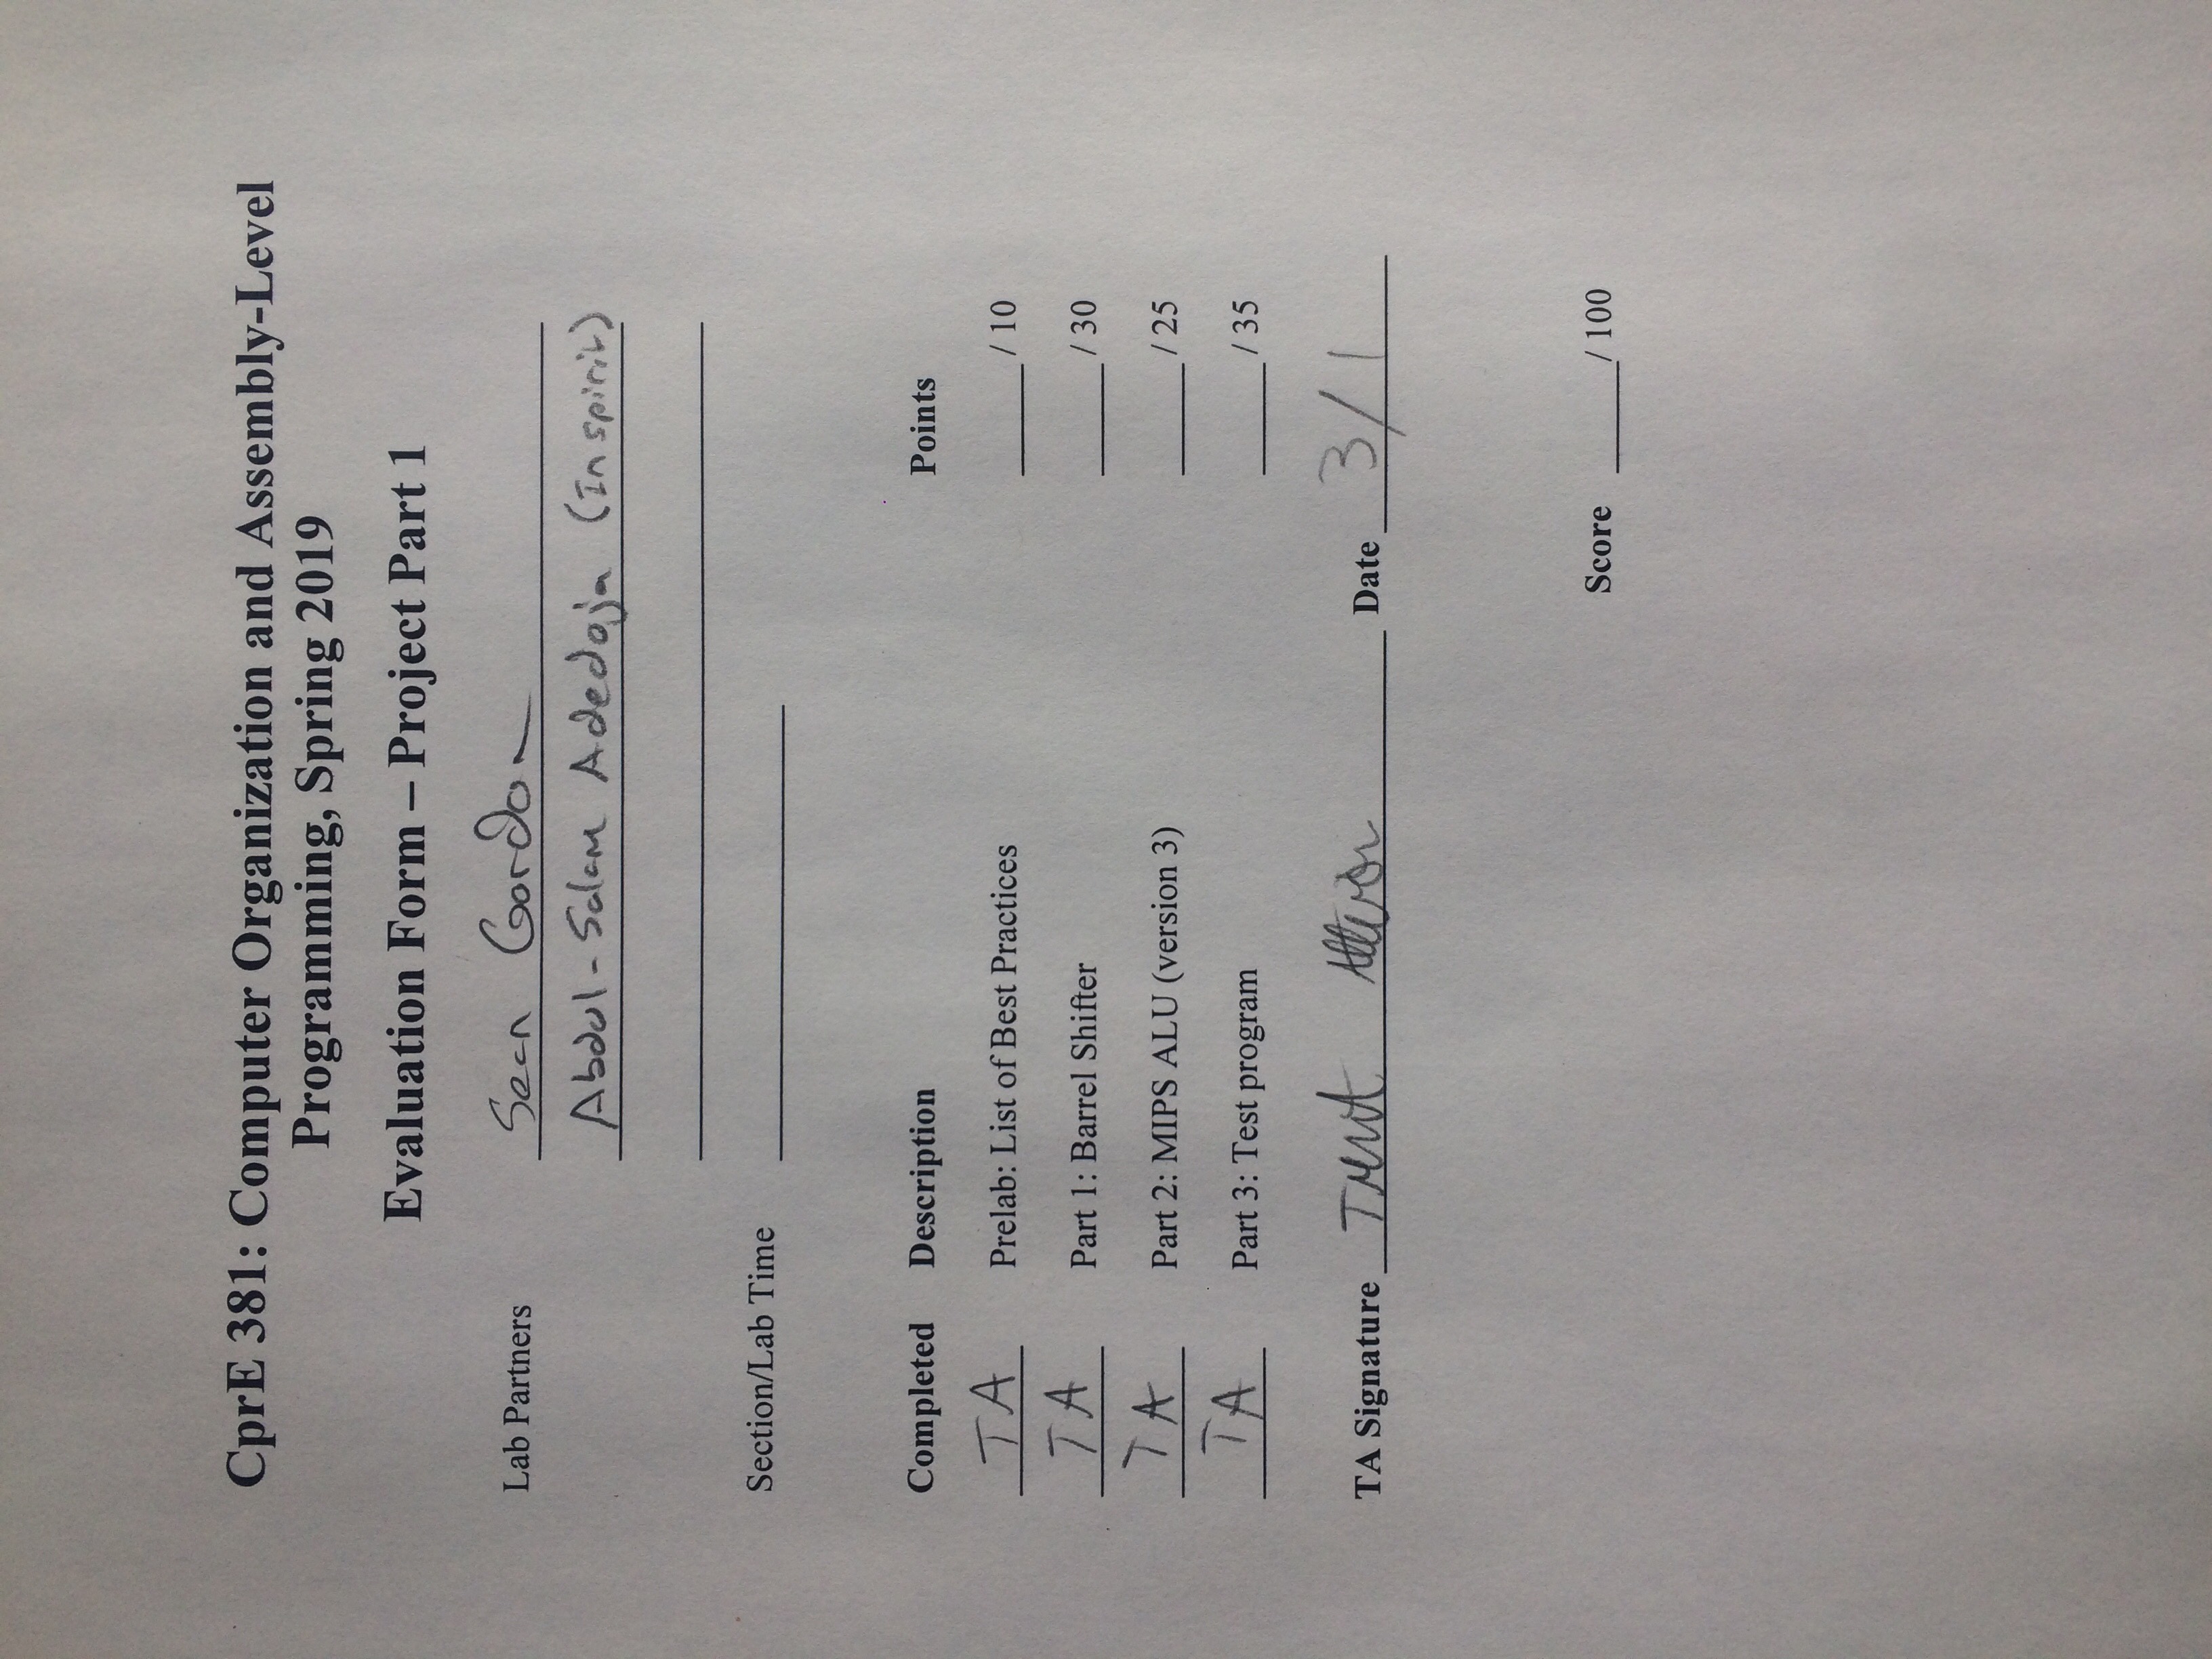 CprE 381: Computer Organization and Assembly-Level
Programming, Spring 2019
Evaluation Form – Project Part 1
Lab Partners Sean Gordon
Abdul-Salam Adedoja (In spirit)
Section/Lab Time
Completed Description Points
TA Prelab: List of Best Practices / 10
TA Part 1: Barrel Shifter / 30
TA Part 2: MIPS ALU (version 3) / 25
TA Part 3: Test program / 35
TA Signature Trent Date 3/1
Score / 100